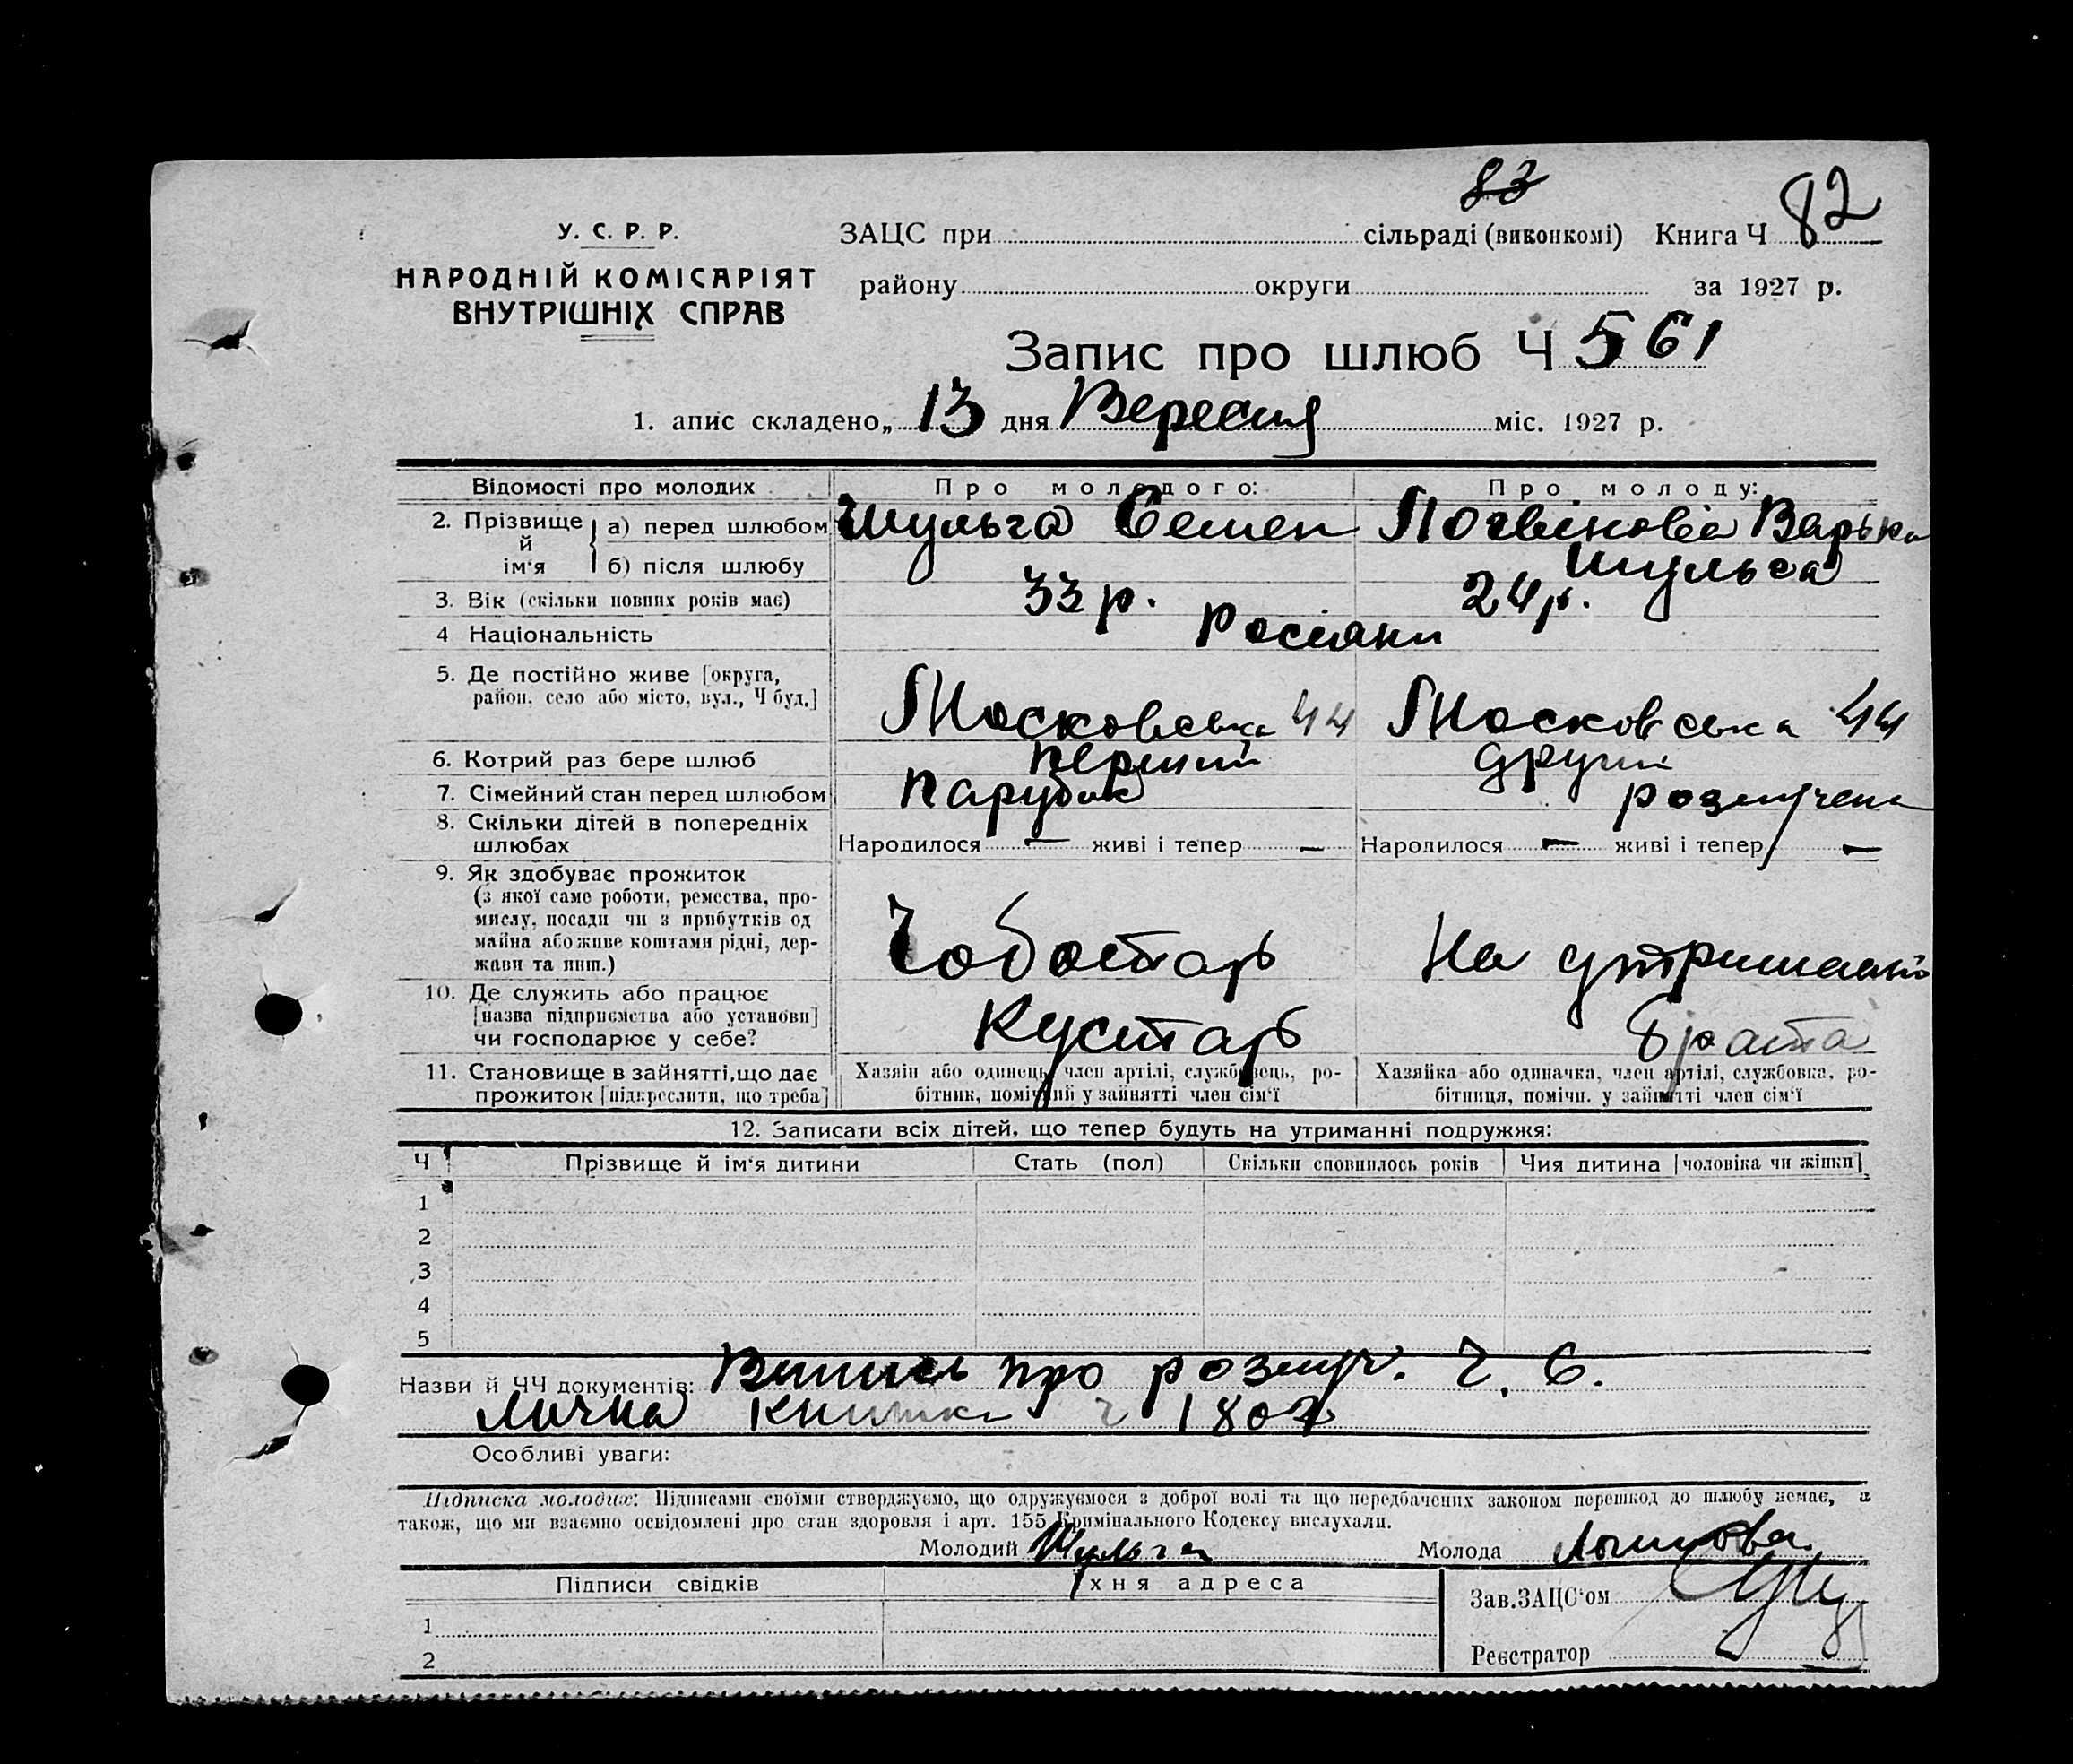 83
У. С. Р. Р.
НАРОДНІЙ КОМІСАРІЯТ
ВНУТРІШНІХ СПРАВ
ЗАЦС при сільраді (виконкомі) Книга Ч 82
району округи за 1927 р.
Запис про шлюб Ч 561
1. апис складено „ 13 дня Вересня міс. 1927 р.
Відомості про молодих Про молодого: Про молоду:
2. Прізвище й ім'я а) перед шлюбом Шульга Семен Логвінова Варька
б) після шлюбу Шульга
3. Вік (скільки повних років має) 33 р. 24 р.
4 Національність Росіяни
5. Де постійно живе [округа, Московська 44 Московська 44
район, село або місто, вул., Ч буд.]
6. Котрий раз бере шлюб перший другий
7. Сімейний стан перед шлюбом парубок розлучена
8. Скільки дітей в попередніх
шлюбах Народилося — живі і тепер — Народилося — живі і тепер —
9. Як здобуває прожиток
(з якої саме роботи, ремества, про-
мислу, посади чи з прибутків од
майна або живе коштами рідні, дер-
жави та инш.) Чоботарь На утриманні
10. Де служить або працює
[назва підприємства або установи]
чи господарює у себе? Кустарь брата
11. Становище в зайнятті, що дає
прожиток [підкреслити, що треба]
Хазяїн або одинець, член артілі, службовець, ро-
бітник, помічний у зайнятті член сім'ї
Хазяйка або одиначка, член артілі, службовка, ро-
бітниця, помічн. у зайнятті член сім'ї
12. Записати всіх дітей, що тепер будуть на утриманні подружжя:
Ч Прізвище й ім'я дитини Стать (пол) Скільки сповнилось років Чия дитина [чоловіка чи жінки]
1
2
3
4
5
Назви й ЧЧ документів: Випись про розлуч. Ч. 6.
Лична книжка ч 1802
Особливі уваги:
Підписка молодих: Підписами своїми стверджуємо, що одружуємося з доброї волі та що передбачених законом перешкод до шлюбу немає, а
також, що ми взаємно освідомлені про стан здоровля і арт. 155 Кримінального Кодексу вислухали.
Молодий Шульга Молода
Підписи свідків Їхня адреса
1
2
Зав. ЗАЦС'ом
Реєстратор